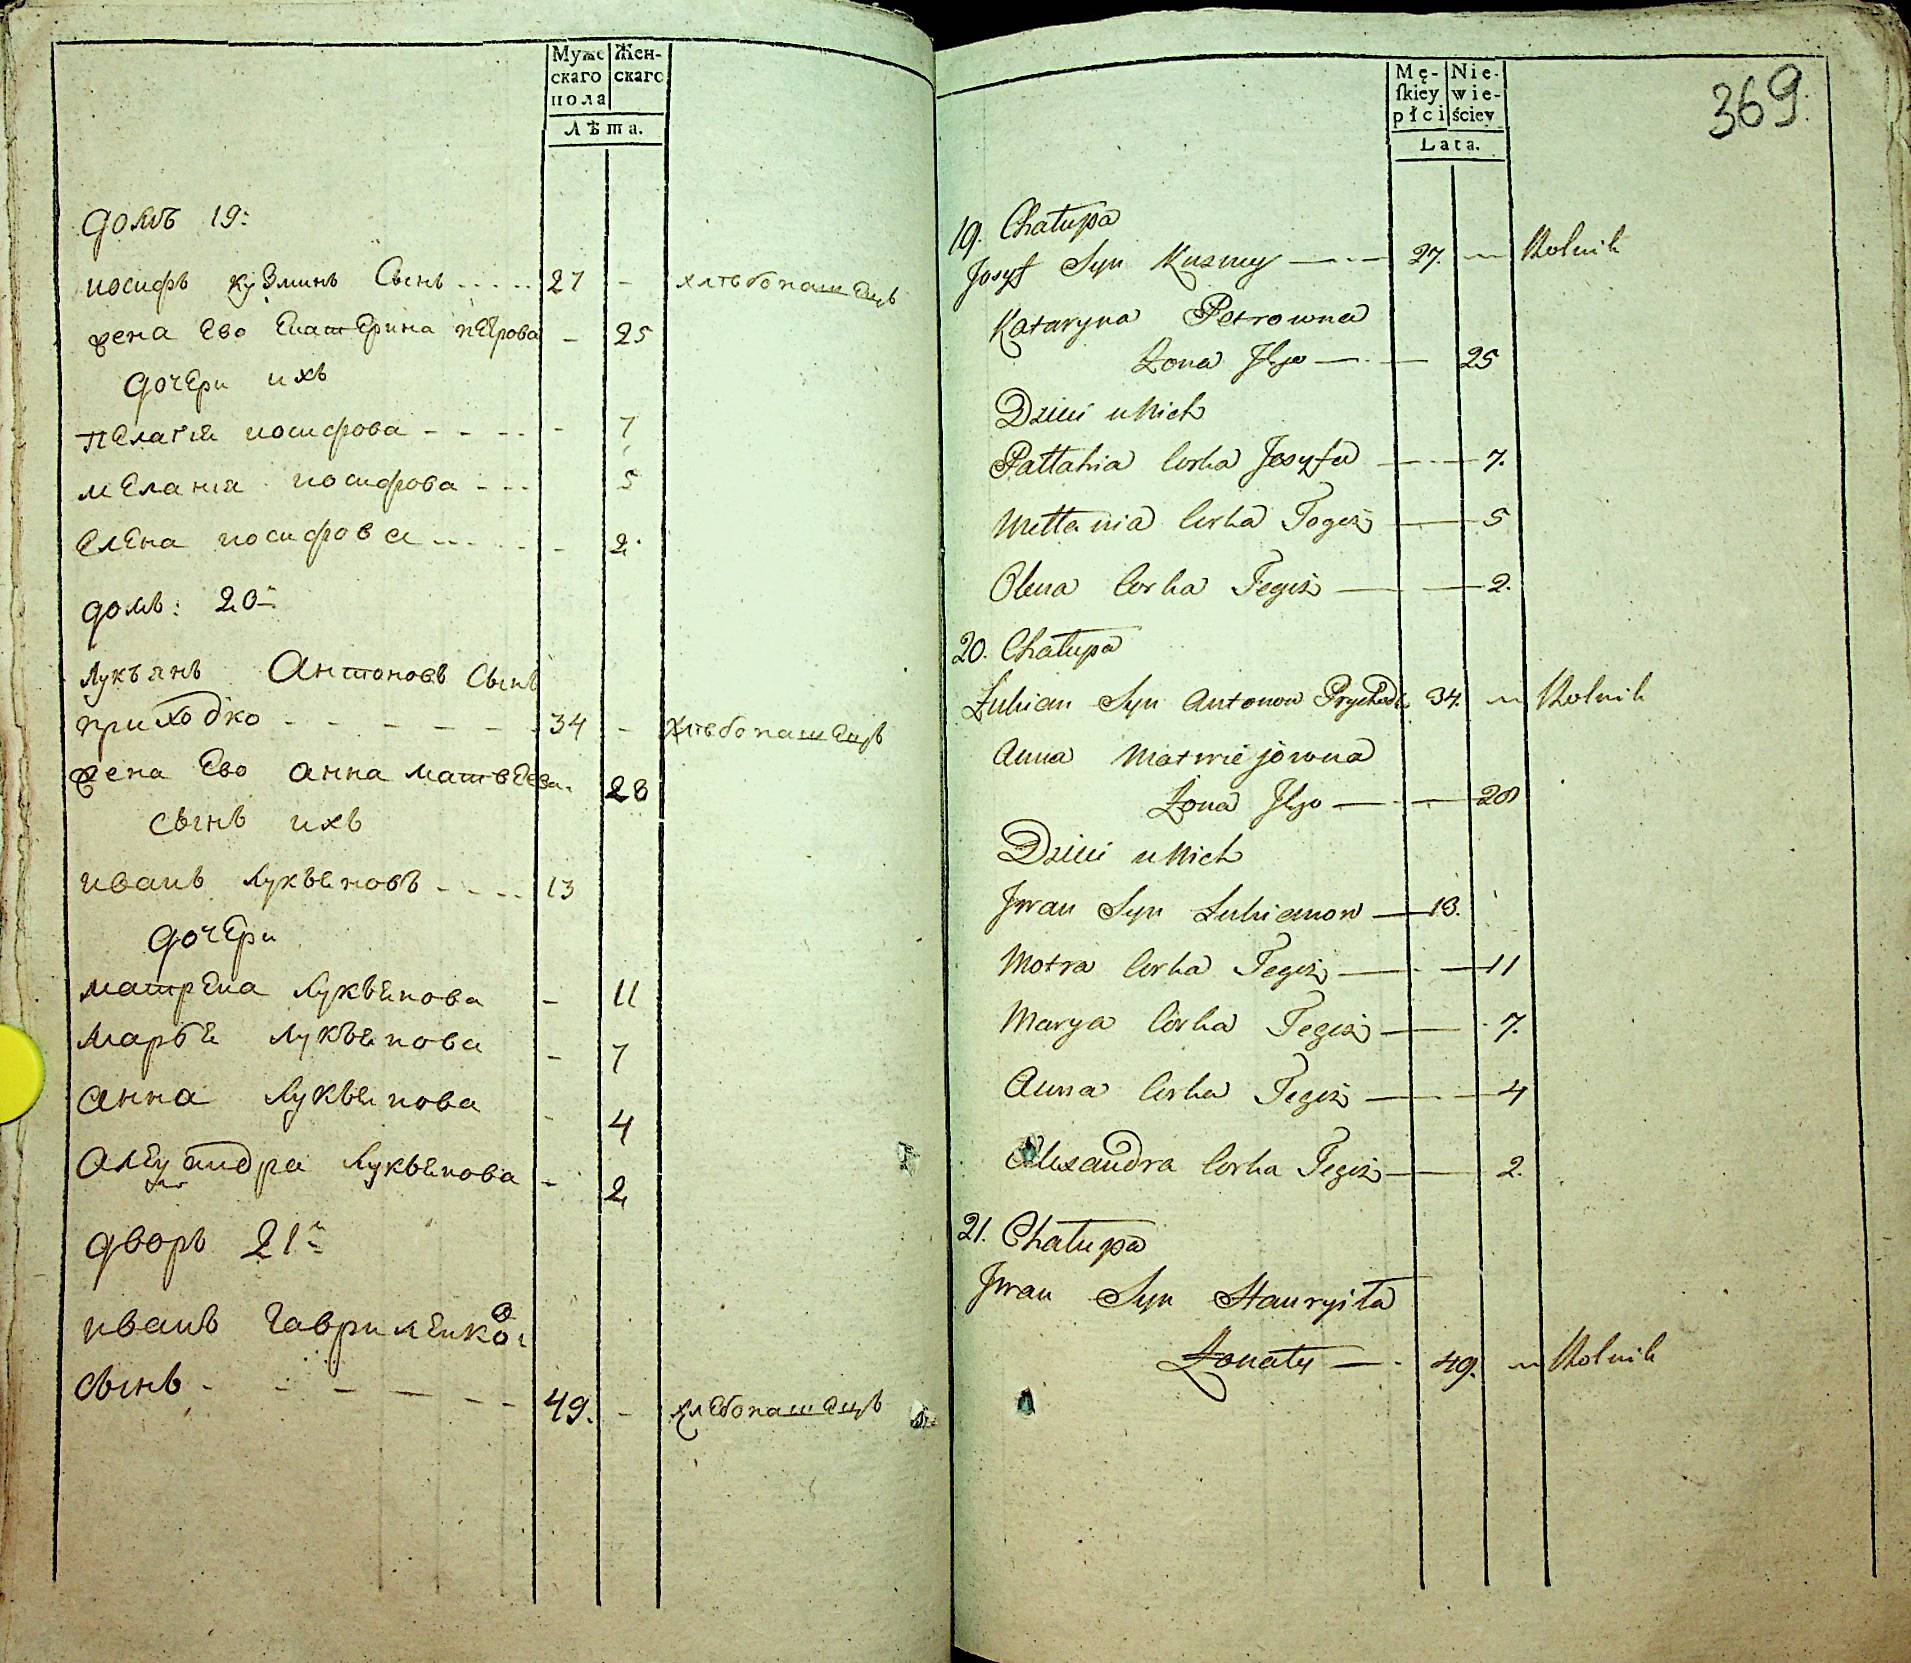 Муже
скаго
пола
Жен-
скаго
Лѣта.
домъ 19:
иосифъ кузминъ Сынъ 27 - хлѣбопашецъ
жена Ево Екатерина пЕтрова - 25
дочери ихъ
пЕлагия иосифова - 7
мЕлания иосифова 5
ЕлЕна иосифова - 2.
домъ: 20
Лукъянъ Антоновъ Сынъ
приходко 34 - хлѣбопашецъ
жена Ево Анна матвЕева. 28
сынъ ихъ
иванъ Лукъяновъ 13
дочЕри
матрЕна Лукъянова - 11
марья Лукъянова - 7
анна Лукъянова - 4
АлЕксандра Лукъянова - 2
дворъ 21
иванъ гаврилЕнков
сынъ 49. - хлЕбопашЕцъ
369.
Mę-
ſkiey
płci
Nie-
wie-
ściey
Lata.
19. Chałupa
Josyf Syn Kuzmy 27. Rolnik
Kataryna Petrowna
Żona Jgo 25
Dzieci u Nich
Pałłahia Corka Josyfa 7.
Mełłania Corka Togoż 5
Olena Corka Tegoż 2.
20. Chałupa
Łukian Syn Antonow Prychodk 34. Rolnik
Anna Matwiejowna
Żona Jgo 28
Dzieci u Nich
Jwan Syn Łukianow 13.
Motra Corka Tegoż 11
Marya Córka Tegoż 7.
Anna Corka Tegoż 4
Alexandra Corka Tegoż 2.
21. Chałupa
Jwan Syn Hauryiła
Żonaty 49. Rolnik